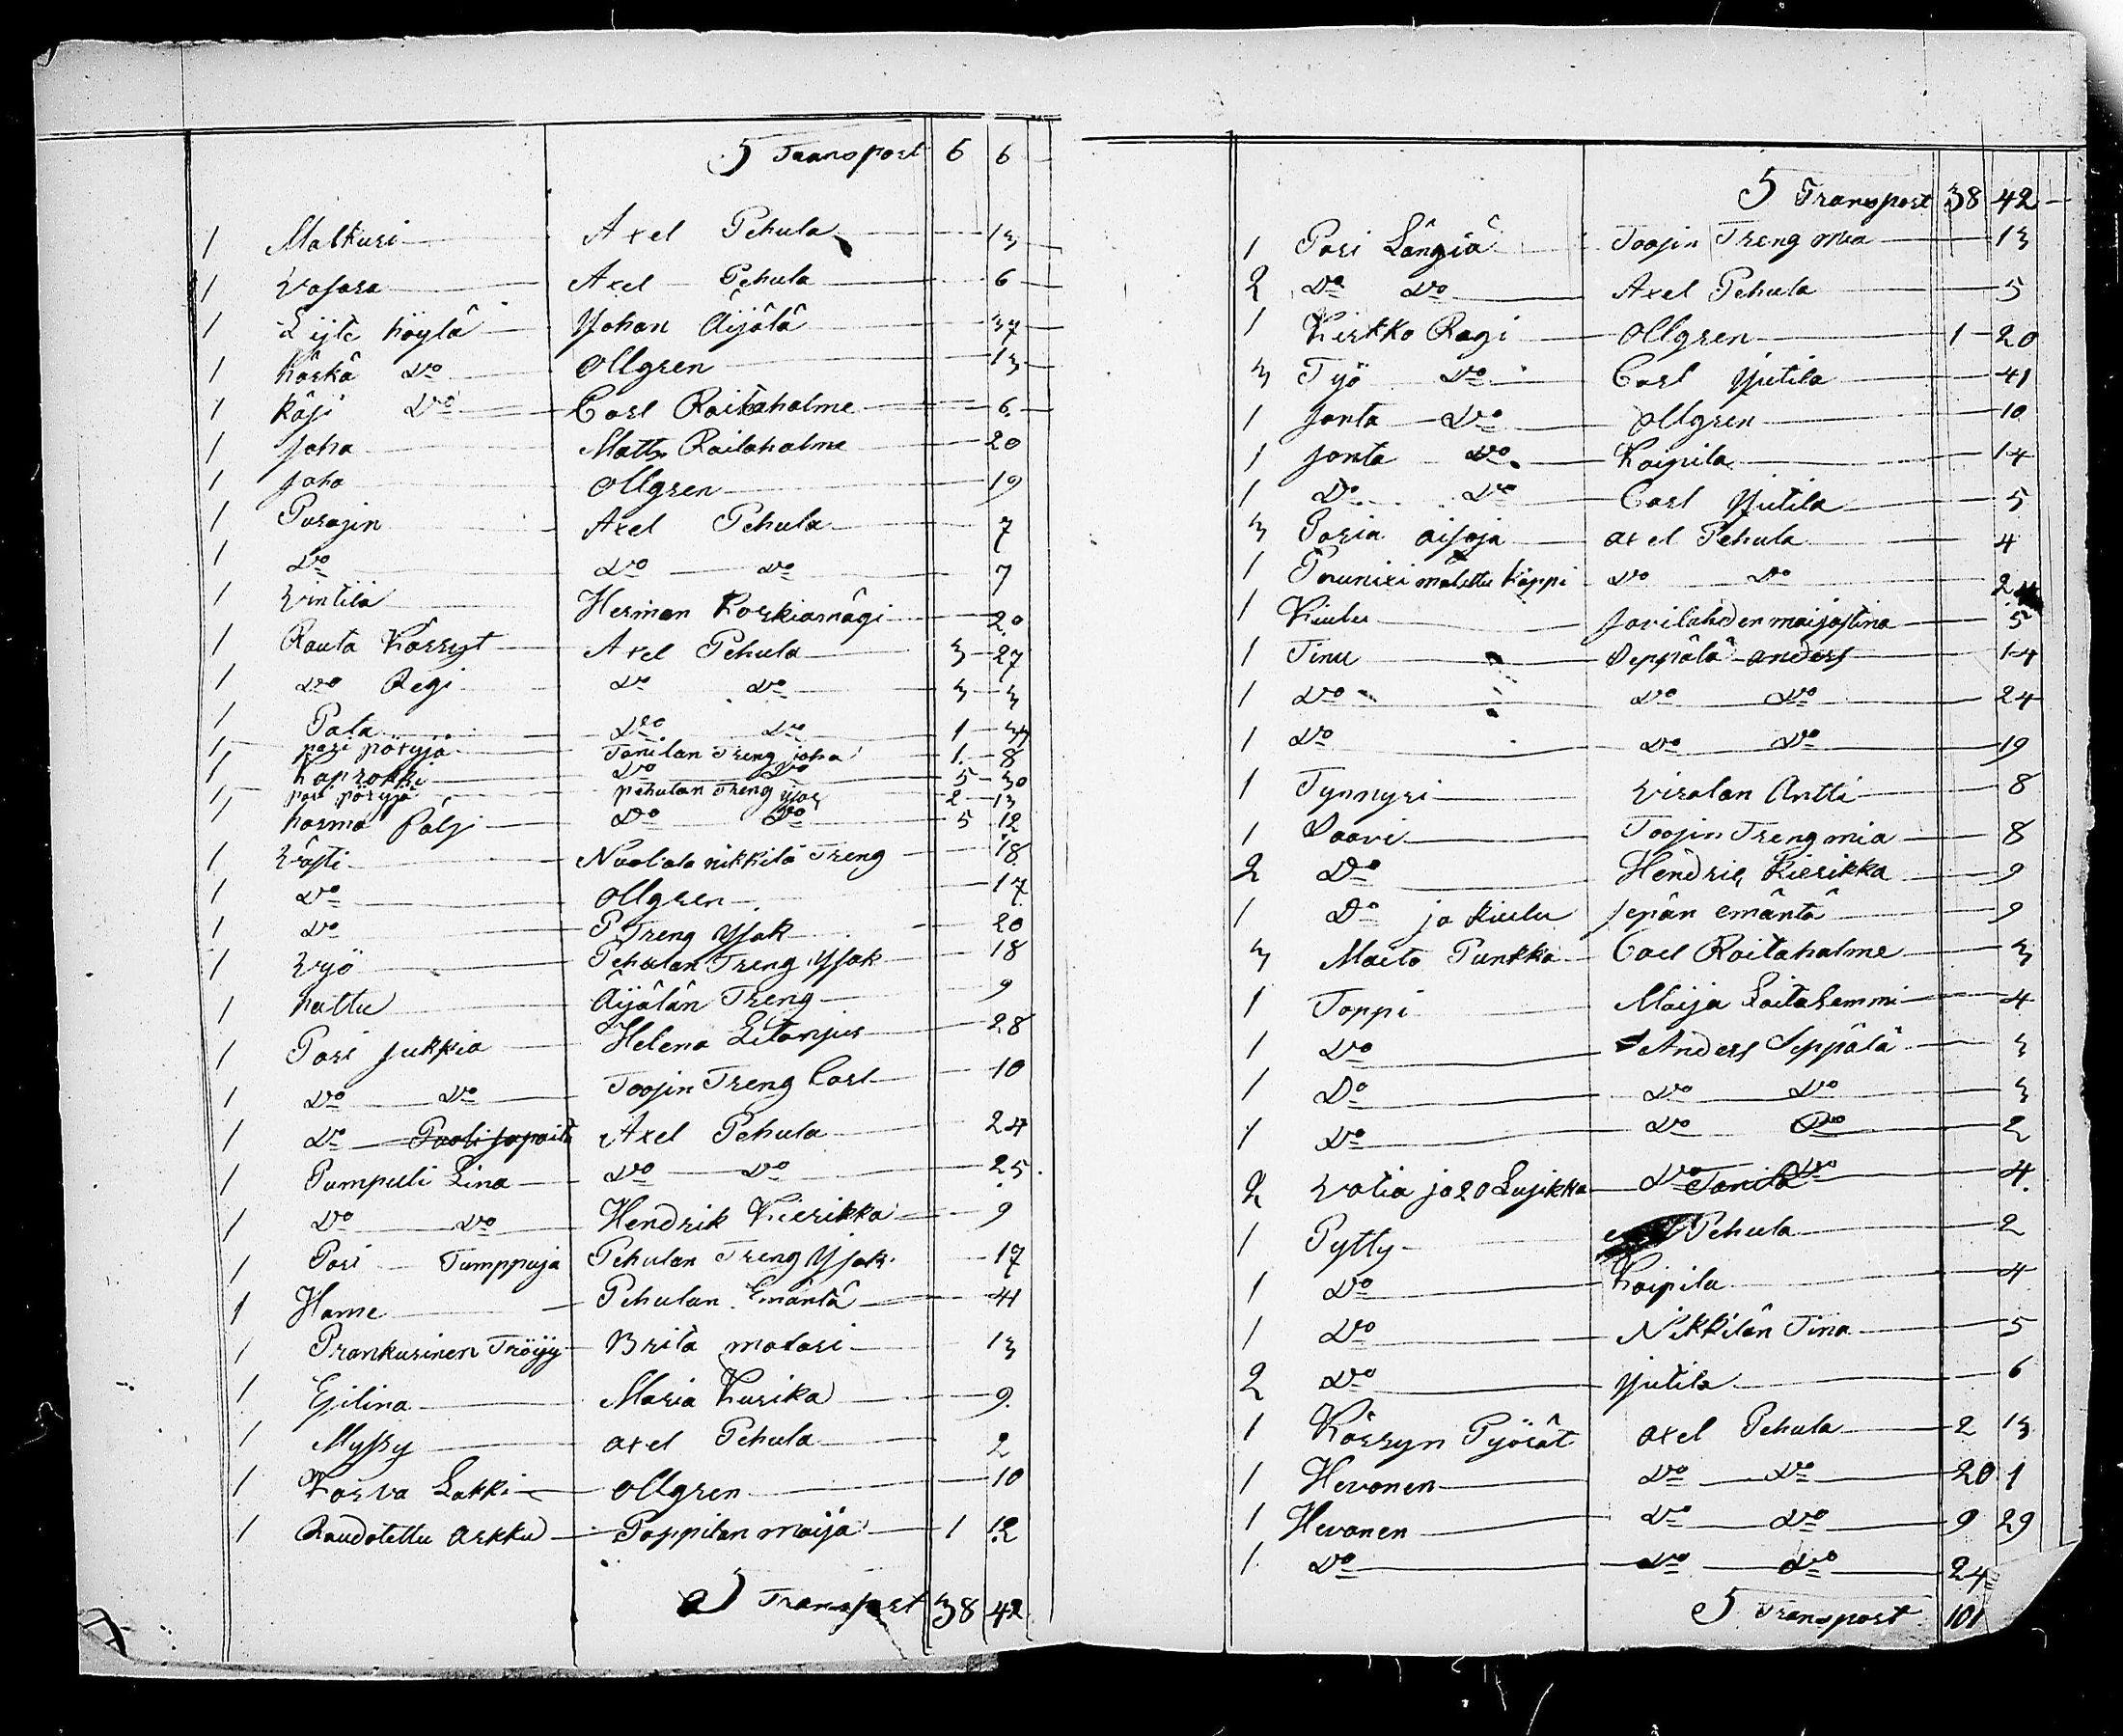 5 Transport 6 6
1 Malkuri Axel Pehula 13
1 Vasara Axel Pehula 6
1 Lijte höylä Johan Äijälä 37
1 härkä Do Ollgren 13
1 käsi Do Carl Raitaholme 6
1 Saha Matts Raitaholme 20
1 Saha Ollgren 19
1 Purasin Axel Pehula 7
1 Do Do Do 7
1 Vintilä Herman Koskiamägi 20
1 Rauta Kärryt Axel Pehula 3 27
1 Do Regi Do Do 3 3
1 Pata Do Do 1
1 pari pöryjä Tanilan Treng joha 1 8
1 haprokki Do Do 5 30
1 pari pöryjä pehulan Treng 2 13
1 harma Pälsi Do Do 5 12
1 Västi Nuoliala nikkilä Treng 18
1 Do Ollgren 17
1 Do P Treng Ysak 20
1 Vyö Pehulan Treng Ysak 18
1 hattu Äijälän Treng 9
1 Pari sukkia Helena Litonjus 28
1 Do Do Toojin Treng Carl 10
1 Do Axel Pehula 24
1 Pumpuli Lina Do Do 25
1 Do Do Hendrik Kierikka 9
1 Pari Tumppuja Pehulan Treng Ysak 17
1 Hame Pehulan Emäntä 41
1 Prankurinen Tröijy Brita matari 13
1 Esilina Maria Kurika 9
1 Myssy axel Pehula 2
1 Karva Lakki Ollgren 10
1 Raudotettu arkku Pappilan maija 1 12
5 Transport 38 42
5 Transport 38 42
1 Pari Längiä Toojin Treng mia 13
2 Do Do Axel Pehula 5
1 Kirkko Ragi Ollgren 1 20
3 Työ Do Carl Yjutila 41
1 Santa Do Ollgren 10
1 Santa Do Kaipila 14
1 Do Do Carl Yjutila 5
3 Paria aisoja axel Pehula 4
1 Prunixi malattu käppi Do Do 2
1 Kiulu Savilahden maijastina 5
1 Tinu Seppälä anders 14
1 Do Do Do 24
1 Do Do Do 19
1 Tynnyri Virolan Antti 8
1 Saavi Toojin Treng mia 8
2 Do Hendric Kierikka 9
1 Do ja kiulu Sepän emäntä 9
3 Maito Punkka Carl Raitaholme 3
1 Toppi Maija Laitalammi 4
1 Do Anders Seppälä 3
1 Do Do Do 3
1 Do Do Do 2
2 Vatia ja 20 Lusikka Do Tanila Do 4
1 Pytty Pehula 2
1 Do Kaipila 4
1 Do Nikkilän Tina 5
2 Do Yjutila 6
1 Kärryn Pyörät axel Pehula 2 13
1 Hevonen Do Do 20 1
1 Hevonen Do Do 9 29
1 Do Do Do 24
5 Transport 101